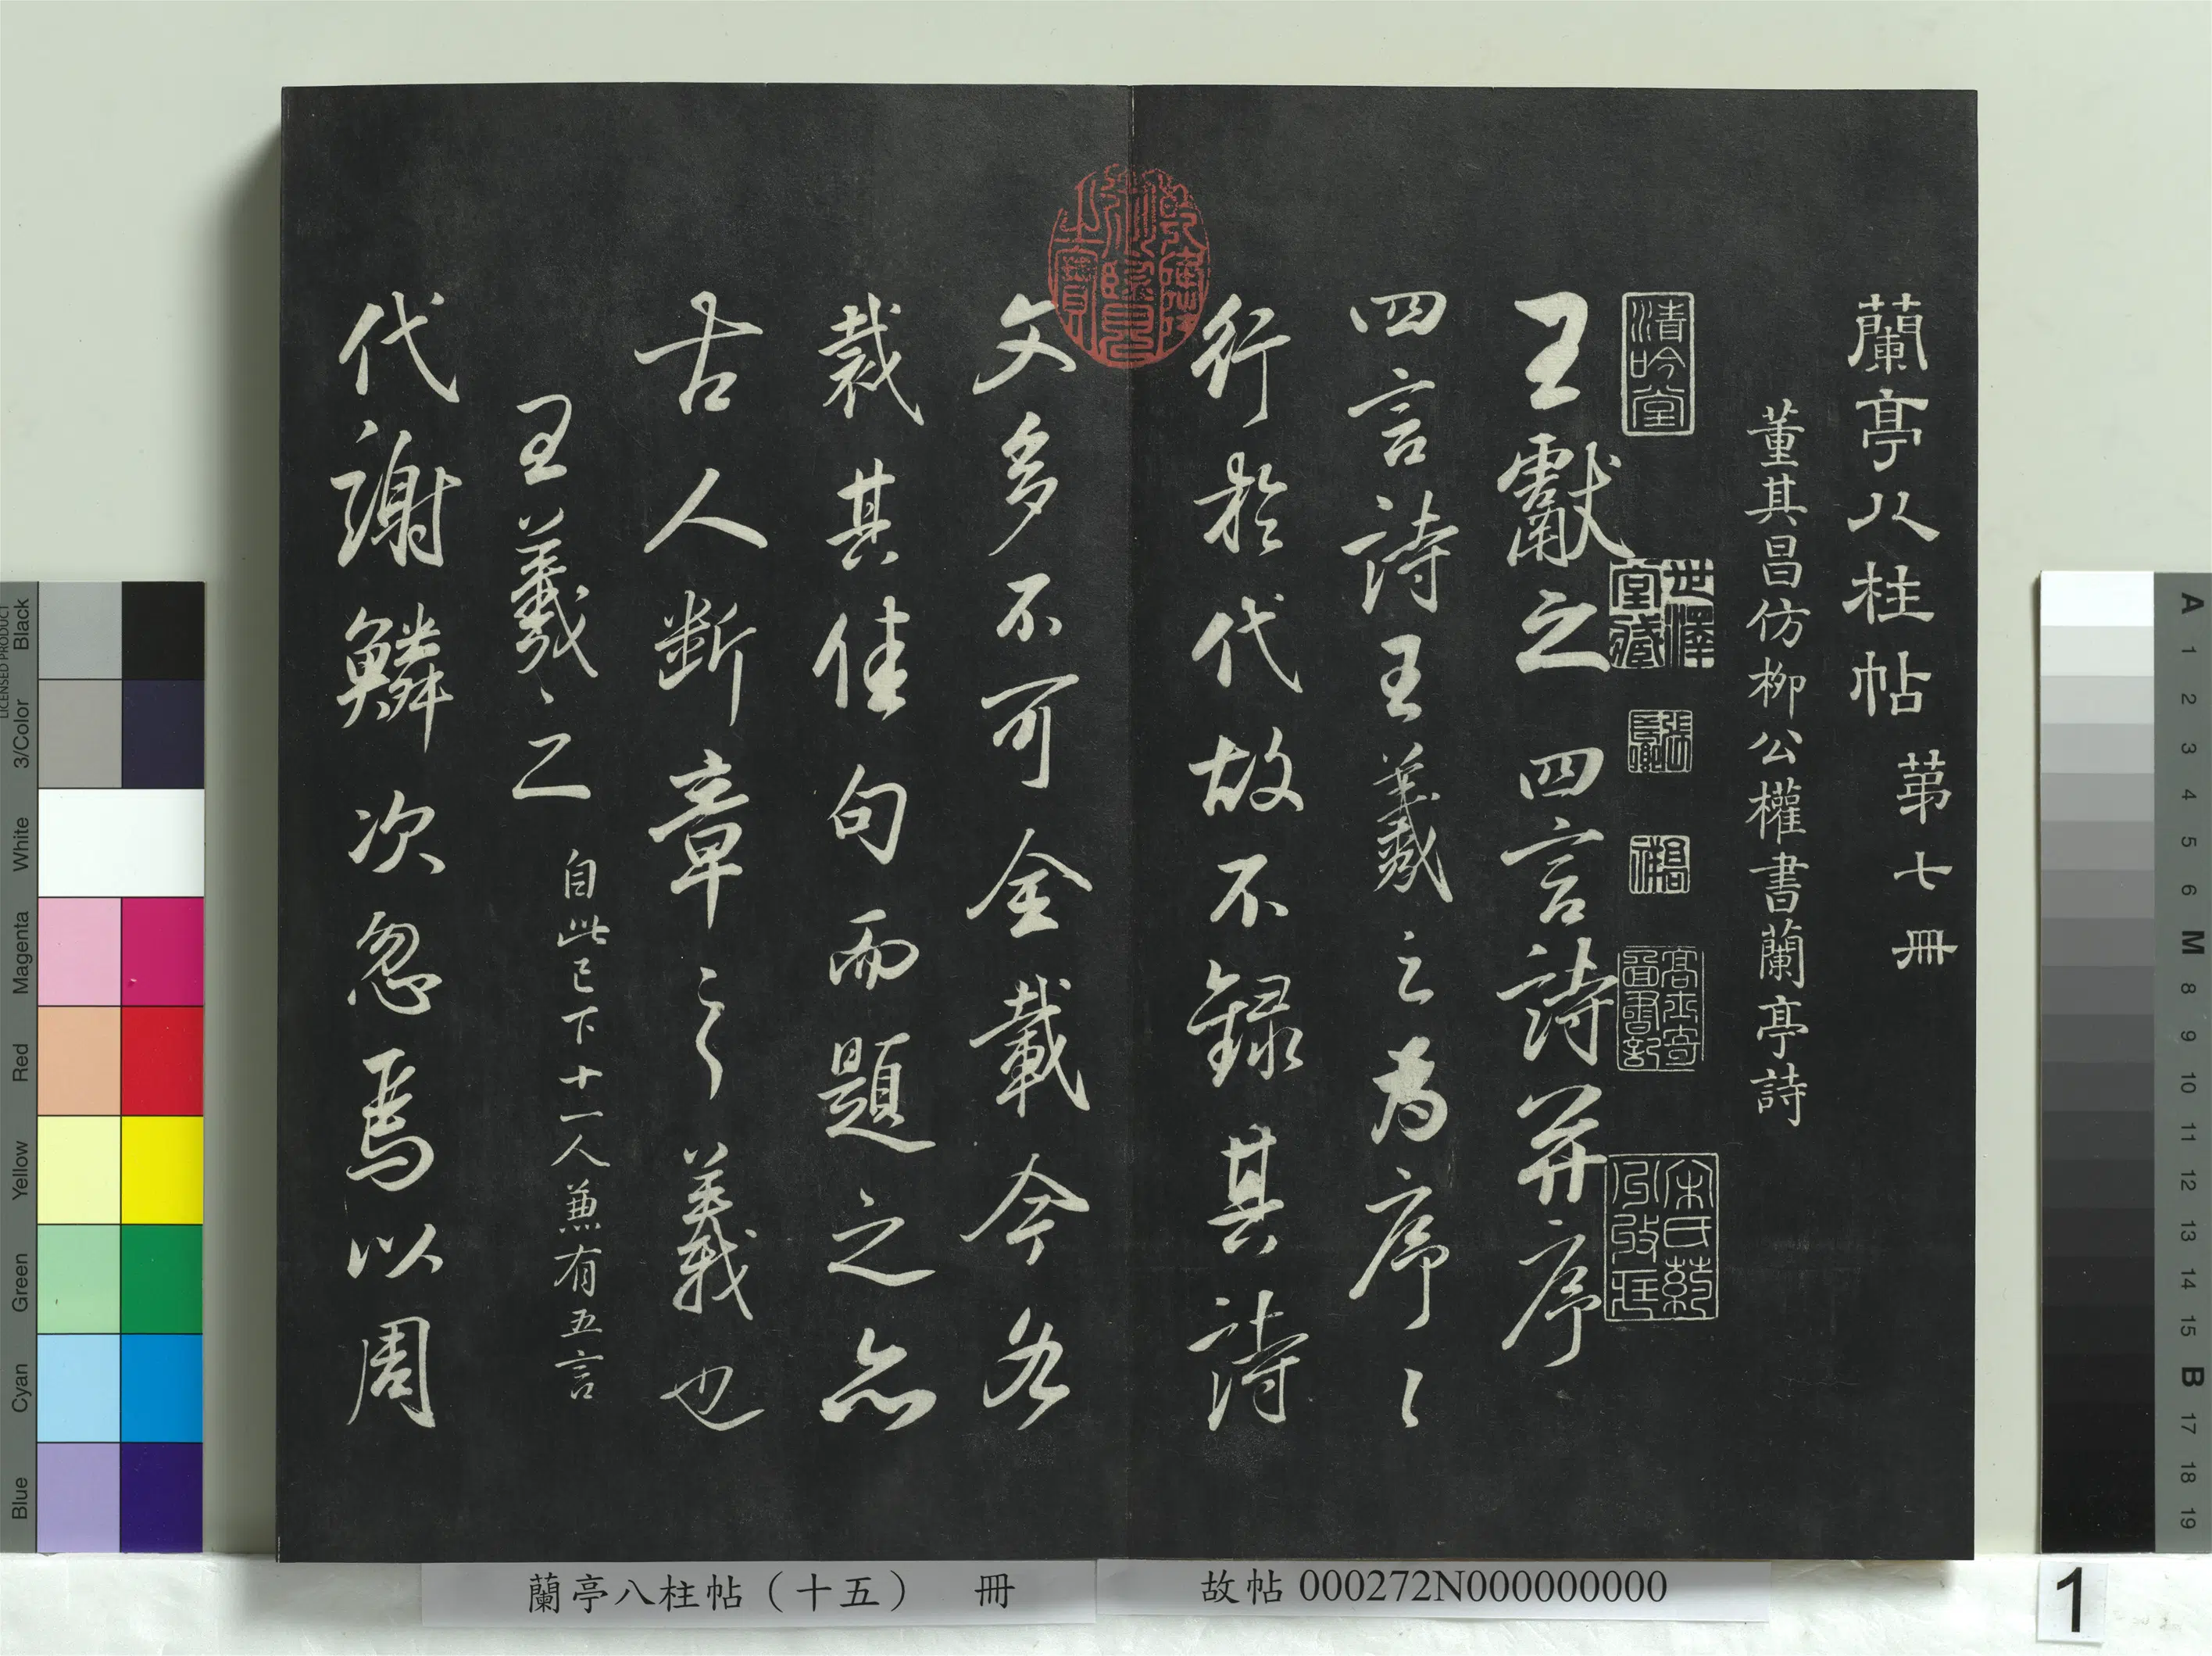 蘭亭八柱帖 第七冊
董其昌仿柳公權書蘭亭詩
清吟堂
世澤堂藏
王獻之四言詩并序
四言詩王羲之為序序
行於代故不録其詩
文多不可全載今各
裁其佳句而題之亦
古人斷章之義也
王羲之 自此已下十一人兼有五言
代謝鱗次忽焉以周
蘭亭八柱帖（十五） 冊
故帖 000272N000000000
1
LICENSED PRODUCT
Black
3/Color
White
Magenta
Red
Yellow
Green
Cyan
Blue
A 1 2 3 4 5 6 M 8 9 10 11 12 13 14 15 B 17 18 19